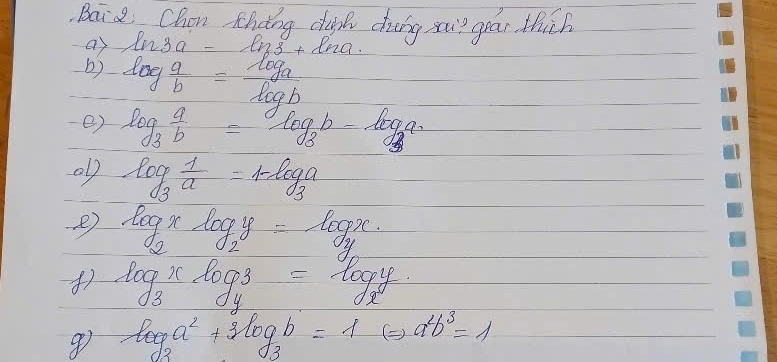 Bài 2: Chọn khẳng định đúng sai? giải thích
a) ln3a = ln3 + lna.
b) log a/b = loga/logb
c) log₃ a/b = log₃b - log₃a.
d) log₃ 1/a = 1-log₃a
e) log₂x log₂y = log_y x.
f) log₃x log_y 3 = log_x y.
g) log₃a² + 3log₃b = 1 ⇔ a²b³ = 1